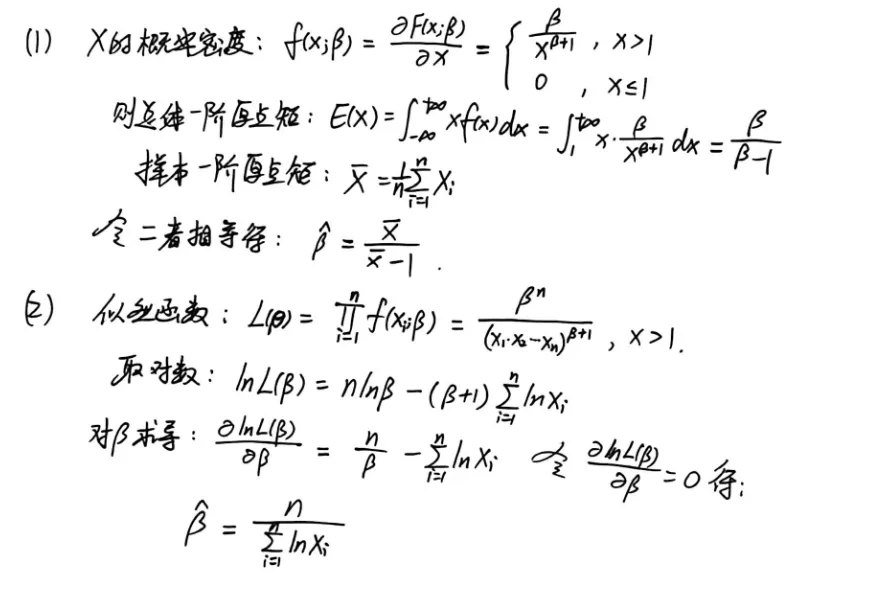 (1) X的概率密度: f(x;β) = ∂F(x;β)/∂x = { β/x^(β+1) , x>1 ; 0 , x≤1
则总体一阶原点矩: E(X) = ∫_{-∞}^{+∞} xf(x)dx = ∫_1^{+∞} x·β/x^(β+1) dx = β/(β-1)
样本一阶原点矩: X̄ = 1/n ∑_{i=1}^n X_i
令二者相等得: β̂ = X̄/(X̄-1) .
(2) 似然函数: L(β) = ∏_{i=1}^n f(x_i;β) = β^n/(x_1·x_2…x_n)^(β+1) , x>1.
取对数: lnL(β) = nlnβ - (β+1) ∑_{i=1}^n lnx_i
对β求导: ∂lnL(β)/∂β = n/β - ∑_{i=1}^n lnx_i 令 ∂lnL(β)/∂β = 0 得:
β̂ = n/∑_{i=1}^n lnx_i